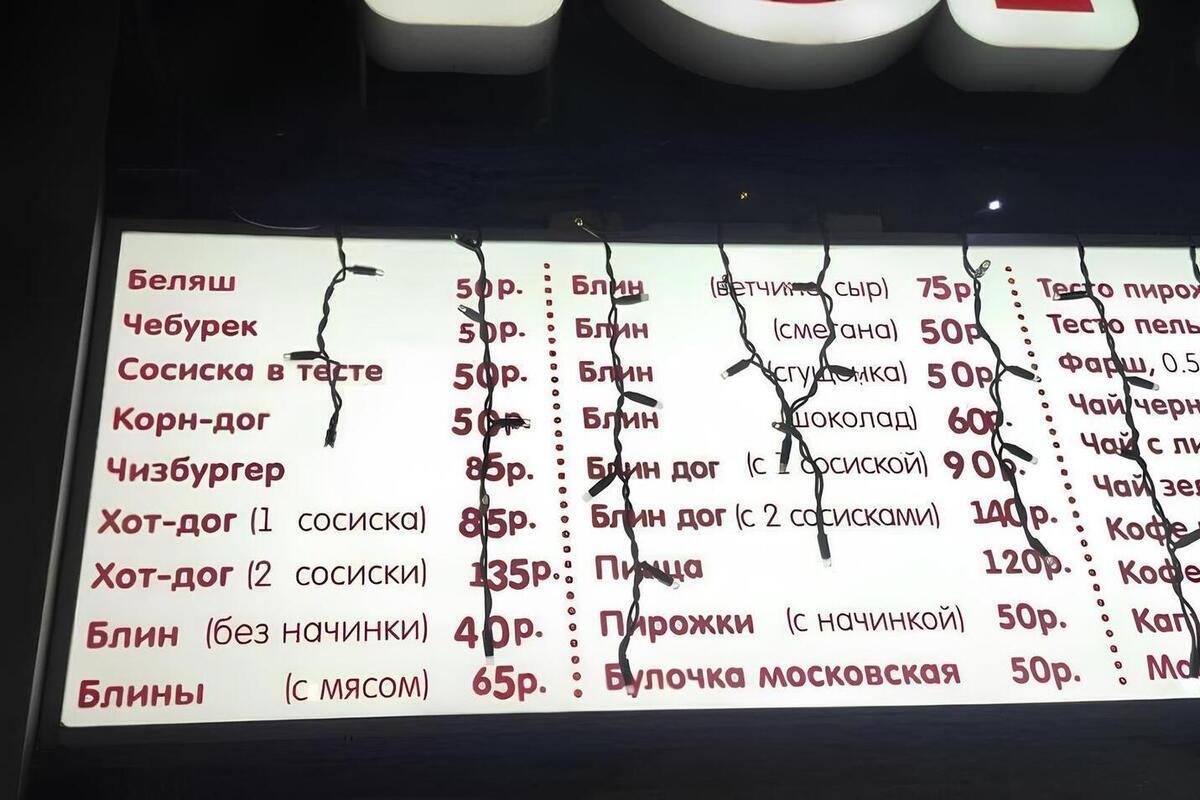 Беляш 50р.
Чебурек 50р.
Сосиска в тесте 50р.
Корн-дог 50р.
Чизбургер 85р.
Хот-дог (1 сосиска) 85р.
Хот-дог (2 сосиски) 135р.
Блин (без начинки) 40р.
Блины (с мясом) 65р.
Блин (ветчина, сыр) 75р.
Блин (сметана) 50р.
Блин (сгущенка) 50р.
Блин (шоколад) 60р.
Блин дог (с 1 сосиской) 90р.
Блин дог (с 2 сосисками) 140р.
Пицца 120р.
Пирожки (с начинкой) 50р.
Булочка московская 50р.
Тесто
Тесто
Фарш, 0.5
Чай
Чай с
Чай
Кофе
Кофе